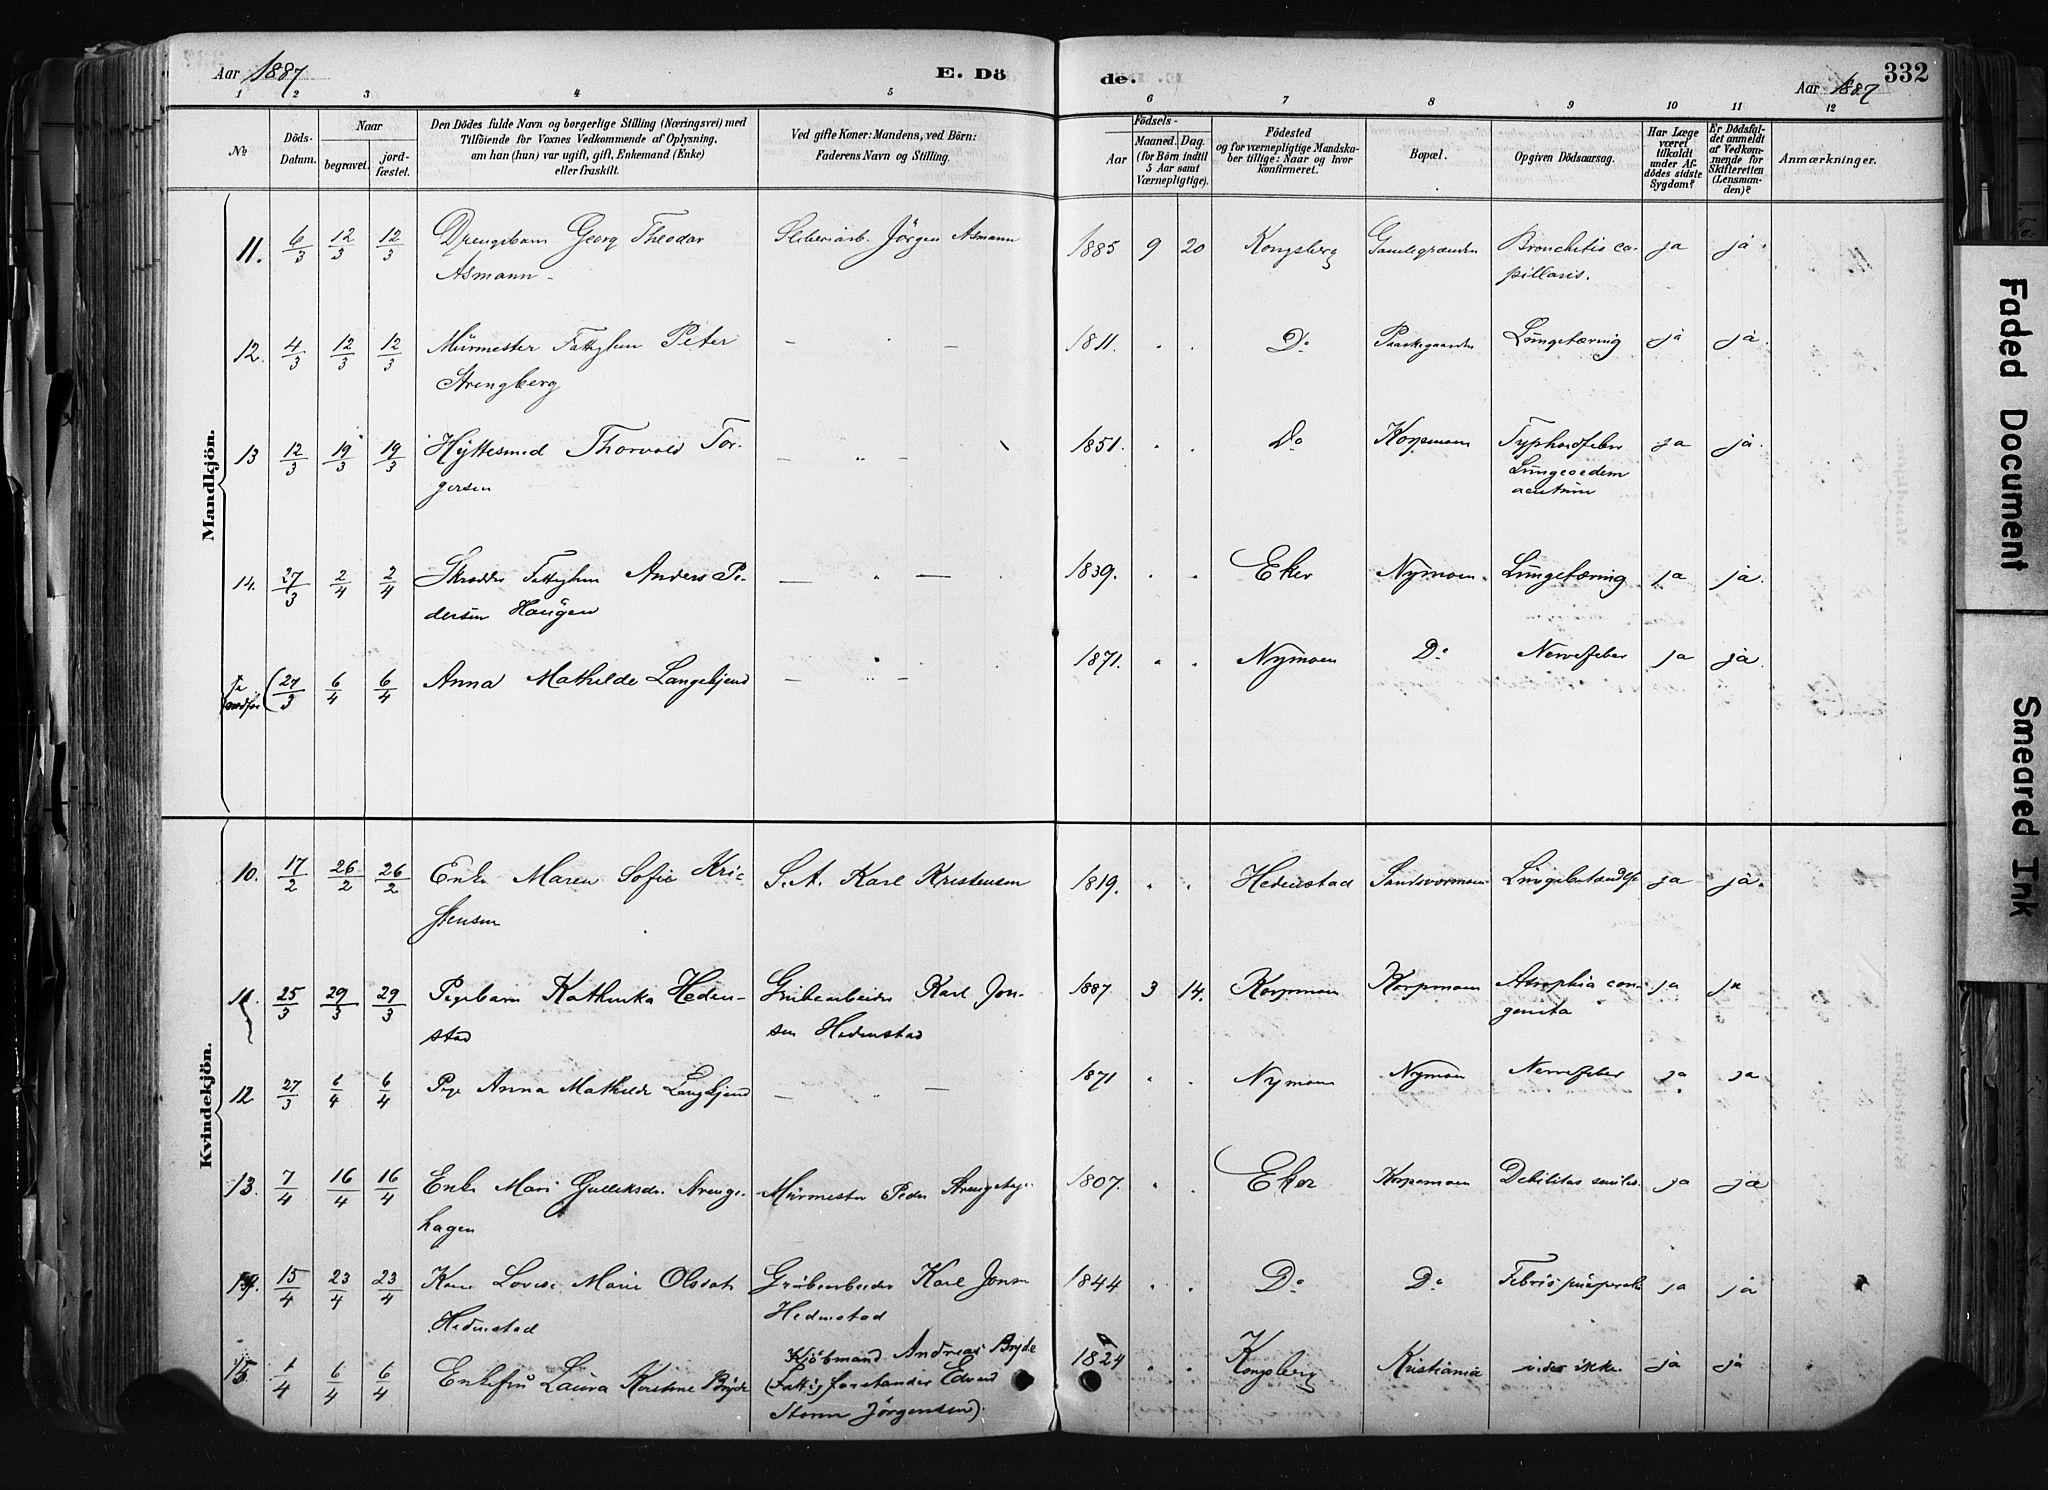 Aar 1887
E. Dö
de.
Aar 1887
332
1 2 3 4 5 6 7 8 9 10 11 12
No
Döds-
Datum.
Naar
begravet.
jord-
fæstet.
Den Dödes fulde Navn og borgerlige Stilling (Næringsvei) med
Tilföiende for Voxnes Vedkommende af Oplysning,
om han (hun) var ugift, gift, Enkemand (Enke)
eller fraskilt.
Ved gifte Koner: Mandens, ved Börn:
Faderens Navn og Stilling.
Födsels-
Aar
Maaned. Dag.
(for Börn indtil
5 Aar samt
Værnepligtige).
Födested
og for værnepligtige Mandska-
ber tillige: Naar og hvor
konfirmeret.
Bopæl.
Opgiven Dödsaarsag.
Har Læge
været
tilkaldt
under Af-
dödes sidste
Sygdom?
Er Dödsfal-
det anmeldt
af Vedkom-
mende for
Skifteretten
(Lensman-
den)?
Anmærkninger.
Mandkjön.
11. 6/3 12/3 12/3 Drengebarn Georg Theodor Jörgen Asmann 1885 9 20 Kongsberg Bronchitis ca- ja ja.
Asmann pillaris.
12. 4/3 12/3 12/3 Mürmester Fattiglem Peter — " — 1811. " " Do Lüngetæring ja ja.
Strengberg
13 12/3 19/3 19/3 Hyttesmed Thorvald Tor- — " — 1851. " " Do Korpemoen Typhoidfeber ja ja.
gersen Lüngeoedem
acutüm
14. 27/3 2/4 2/4 Skrædder Fattiglem Anders Pe- — " — 1839. " " Eker Nymoen. Lüngetæring ja ja.
dersen Haügen
(27/3 6/4 6/4 Anna Mathilde Langekjend — " — 1871. " " Nymoen Do Nervefeber ja ja.
Kvindekjön.
10. 17/2 26/2 26/2 Enke Maren Sofie Kri- S. A. Karl Kristensen 1819. " " Hedenstad Sandsværmoen Lüngebetændelse ja ja.
stensen
11. 25/3 29/3 29/3 Pigebarn Kathinka Heden- Grübearbeider Karl Jon- 1887 3 14. Korpemoen Korpemoen Atrophia con- ja ja
stad sen Hedenstad genita
12 27/3 6/4 6/4 Pige Anna Mathilde Langekjend — " — 1871 " " Nymoen Nymoen Nervefeber ja ja
13. 7/4 16/4 16/4 Enke Mari Gulleksdr. Strenge- Mürmester Peder 1807. " " Eker Korpemoen Debilitas senilis. ja ja
hagen
14. 15/4 23/4 23/4 Kone Lovise Marie Olsdatr Grübearbeider Karl Jonsen 1844 " " Do Do Febris püerperalis ja ja
Hedenstad Hedenstad
15. 1/4 6/4 6/4 Enkefrü Laura Kirstine Bryde Kjöbmand Andreas Bryde 1824 " " Kongsberg Kristiania vides ikke. ja ja
(Fattigforstander Edvard
Storm Jörgensen).
Faded Document
Smeared Ink